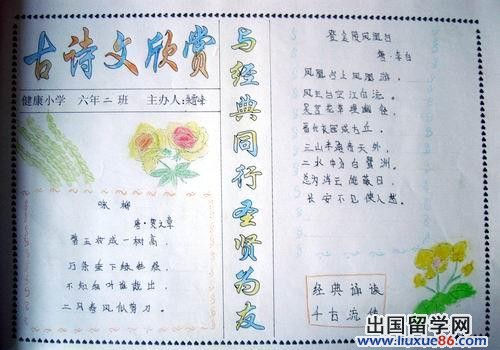 古诗文欣赏
健康小学 六年二班 主办人:
咏柳
唐·贺之章
碧玉妆成一树高,
万条垂下绿丝绦。
不知细叶谁裁出
二月春风似剪刀。
与经典同行 圣贤为友
登金陵凤凰台
唐·李白
凤凰台上凤凰游,
凤去台空江自流。
吴宫花草埋幽径
晋代衣冠成古丘。
三山半落青天外,
二水中分白鹭洲。
总为浮云能蔽日,
长安不见使人愁。
经典诵读
千古流传
出国留学网
www.liuxue86.com